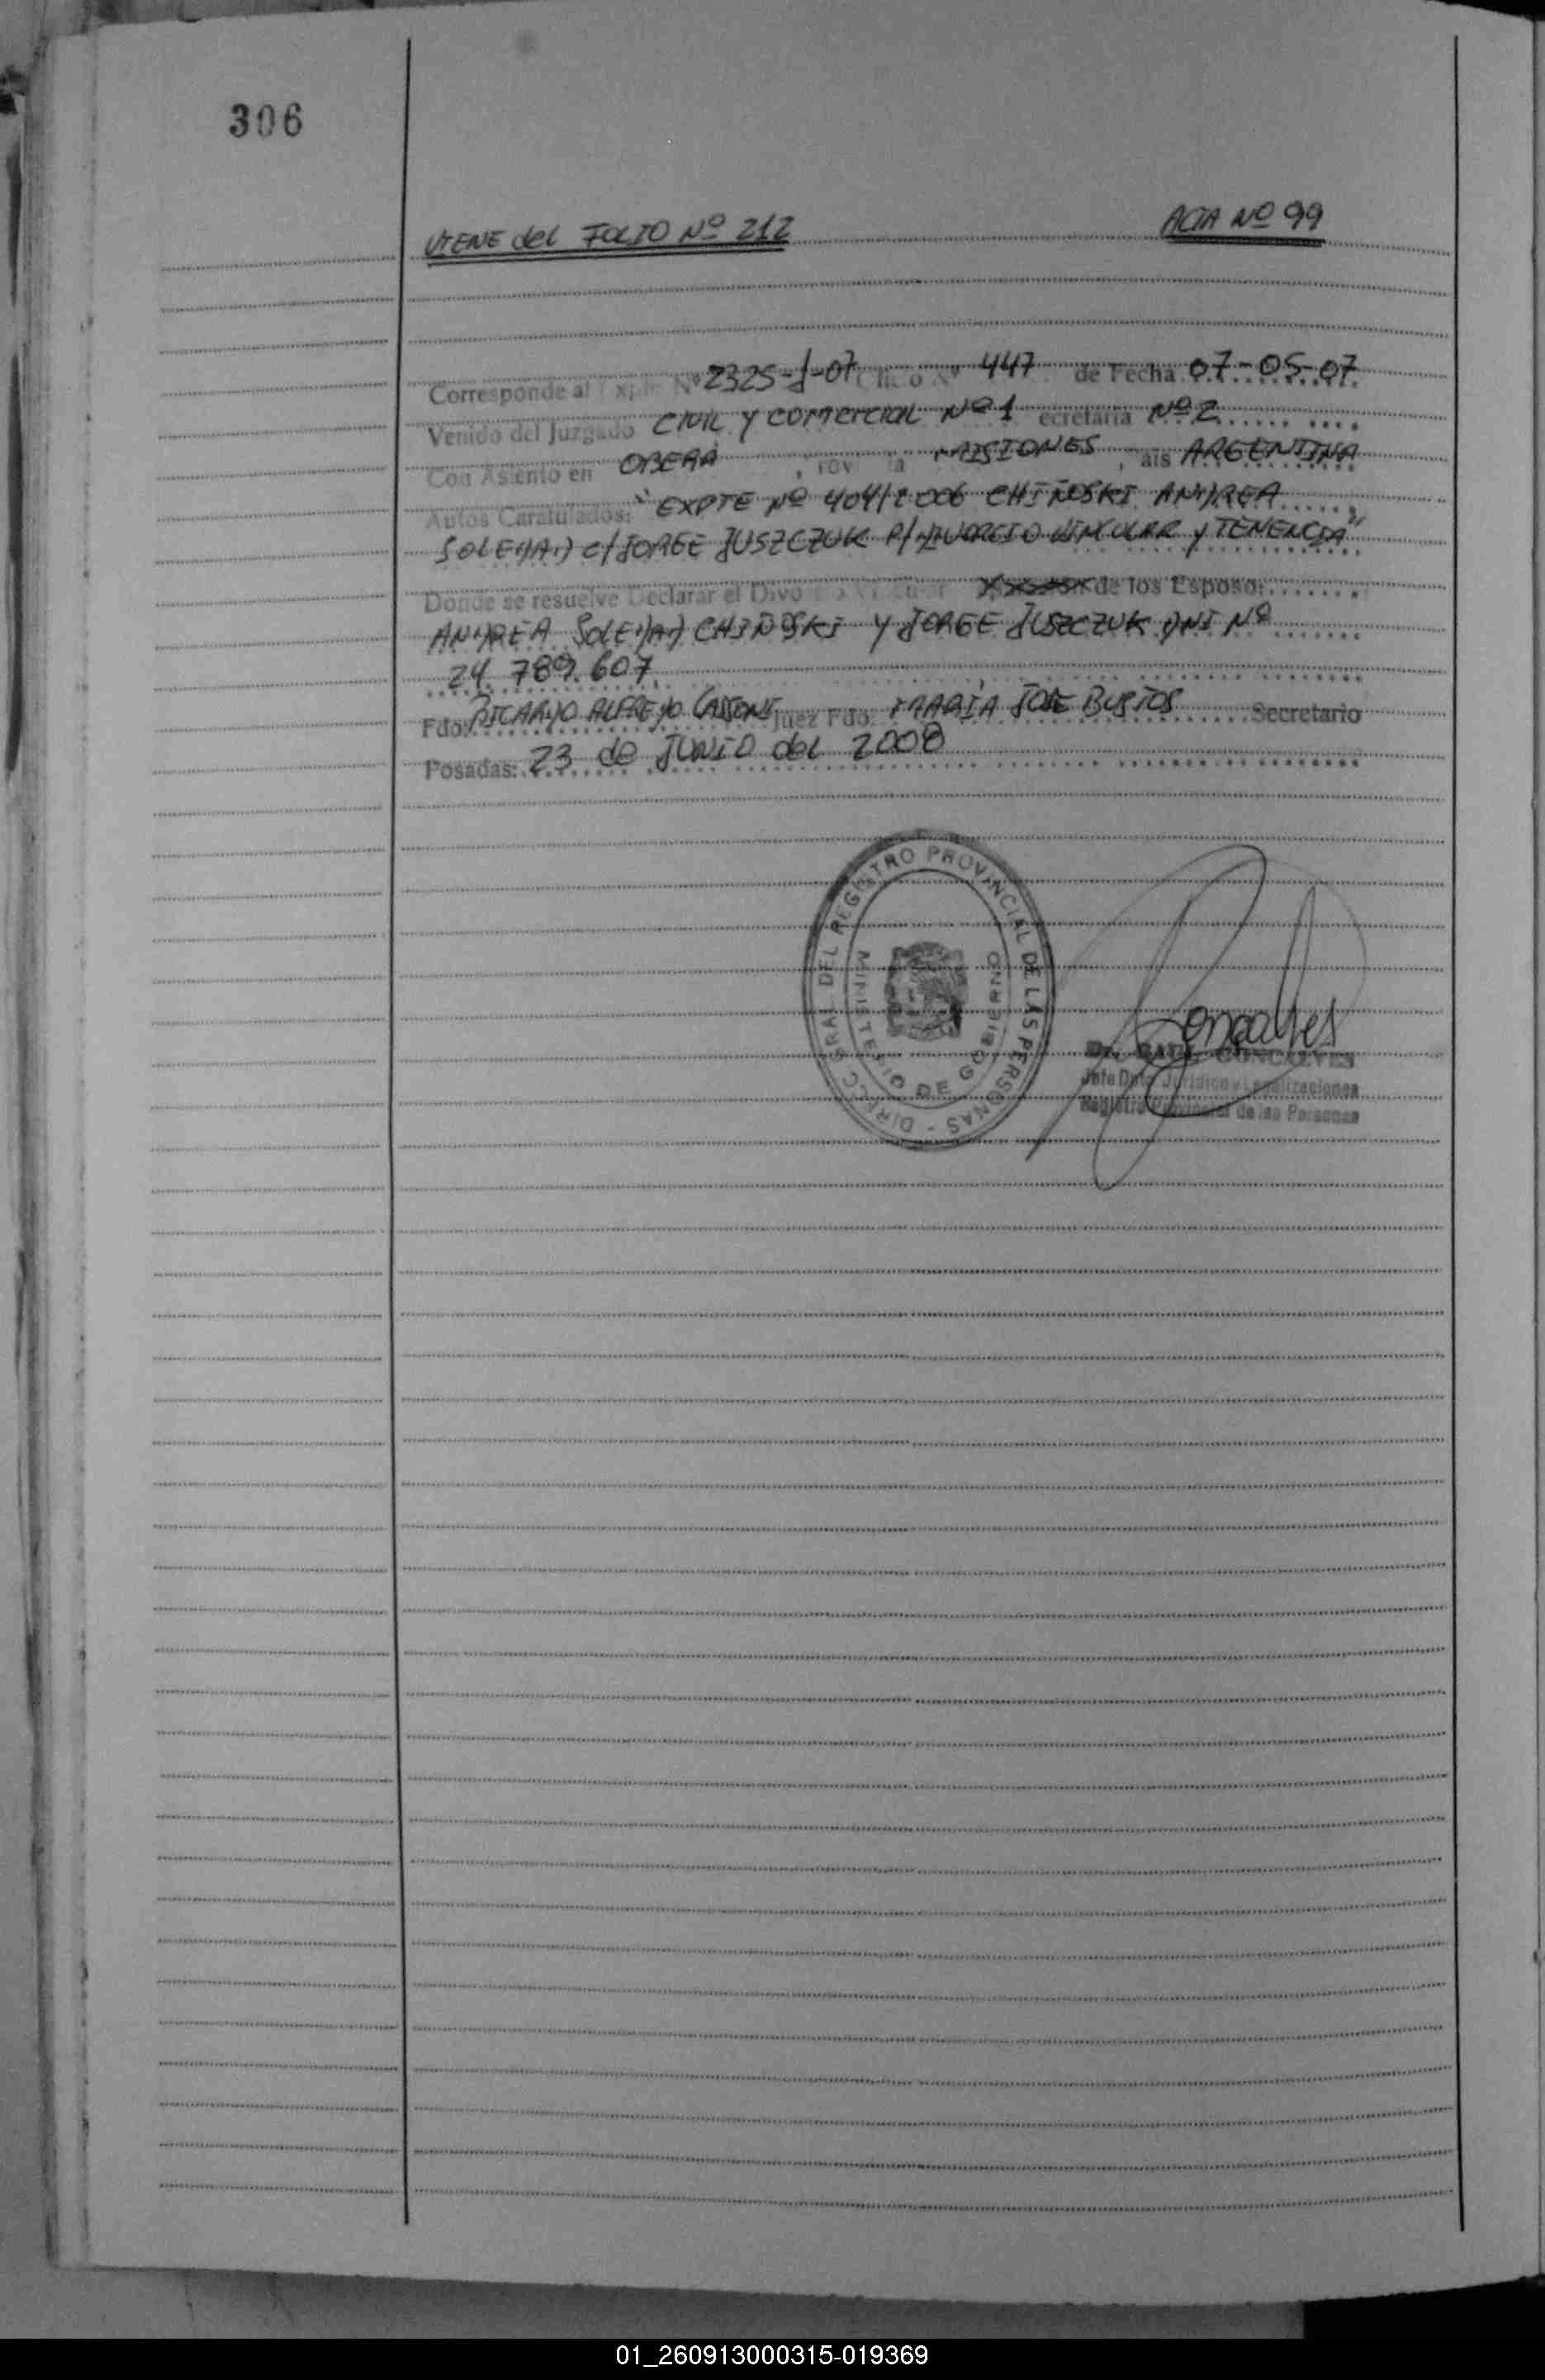 306
VIENE del FOLIO Nº 212 ACTA Nº 99
Corresponde al Expte Nº 2325-J-07 Oficio Nº 447 de Fecha 07-05-07
Venido del Juzgado CIVIL Y COMERCIAL Nº 1 ecretaria Nº 2
Con Asiento en OBERA, rov ia MISIONES, ais ARGENTINA
Autos Caratulados: "EXPTE Nº 404/2006 CHIÑOSKI ANDREA
SOLEDAD c/ JORGE JUSZCZUK P/ DIVORCIO VINCULAR Y TENENCIA"
Donde se resuelve Declarar el Divorcio Vincular de los Esposo:
ANDREA SOLEDAD CHIÑOSKI Y JORGE JUSZCZUK DNI Nº
24.789.607
Fdo: RICARDO ALFREDO CASSONI Juez Fdo: MARÍA JOSE BUSTOS Secretario
Posadas: 23 de JUNIO del 2008
DIRECC GRAL DEL REGISTRO PROVINCIAL DE LAS PERSONAS -
MINISTERIO DE GOBIERNO
Goncalves
Dr. RAUL GONCALVES
Jefe Dpto. Jurídico y Legalizaciones
Registro Provincial de las Personas
01_260913000315-019369